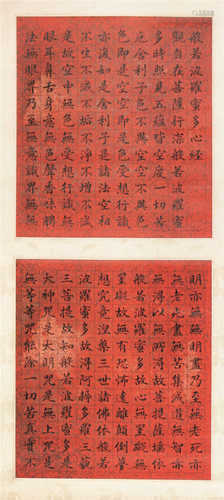 般若波羅蜜多心經
觀自在菩薩行深般若波羅蜜
多時照見五蘊皆空度一切苦
厄舍利子色不異空空不異色
色即是空空即是色受想行識
亦復如是舍利子是諸法空相
不生不滅不垢不淨不增不減
是故空中無色無受想行識無
眼耳鼻舌身意無色聲香味觸
法無眼界乃至無意識界無無
明亦無無明盡乃至無老死亦
無老死盡無苦集滅道無智亦
無得以無所得故菩提薩埵依
般若波羅蜜多故心無罣礙無
罣礙故無有恐怖遠離顛倒夢
想究竟涅槃三世諸佛依般若
波羅蜜多故得阿耨多羅三藐
三菩提故知般若波羅蜜多是
大神咒是大明咒是無上咒是
無等等咒能除一切苦真實不